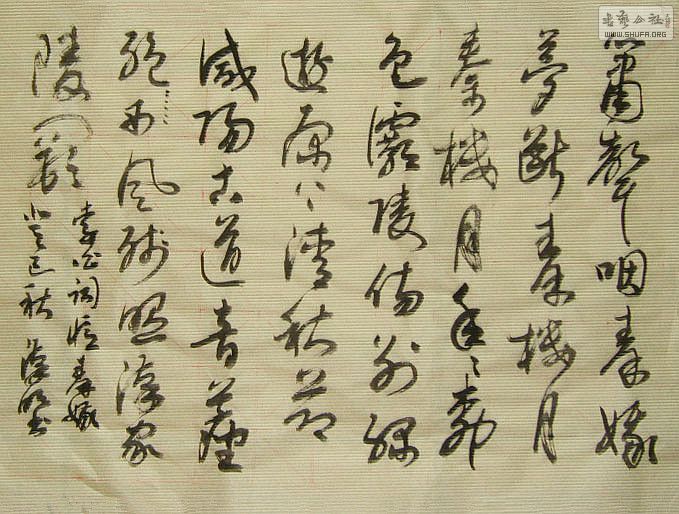 簫聲咽秦娥
夢斷秦樓月
秦樓月年々柳
色灞陵傷別樂
遊原上清秋節
咸陽古道音塵
絕西風殘照漢家
陵闕
李白詞憶秦娥
癸巳秋
书艺公社
WWW.SHUFA.ORG